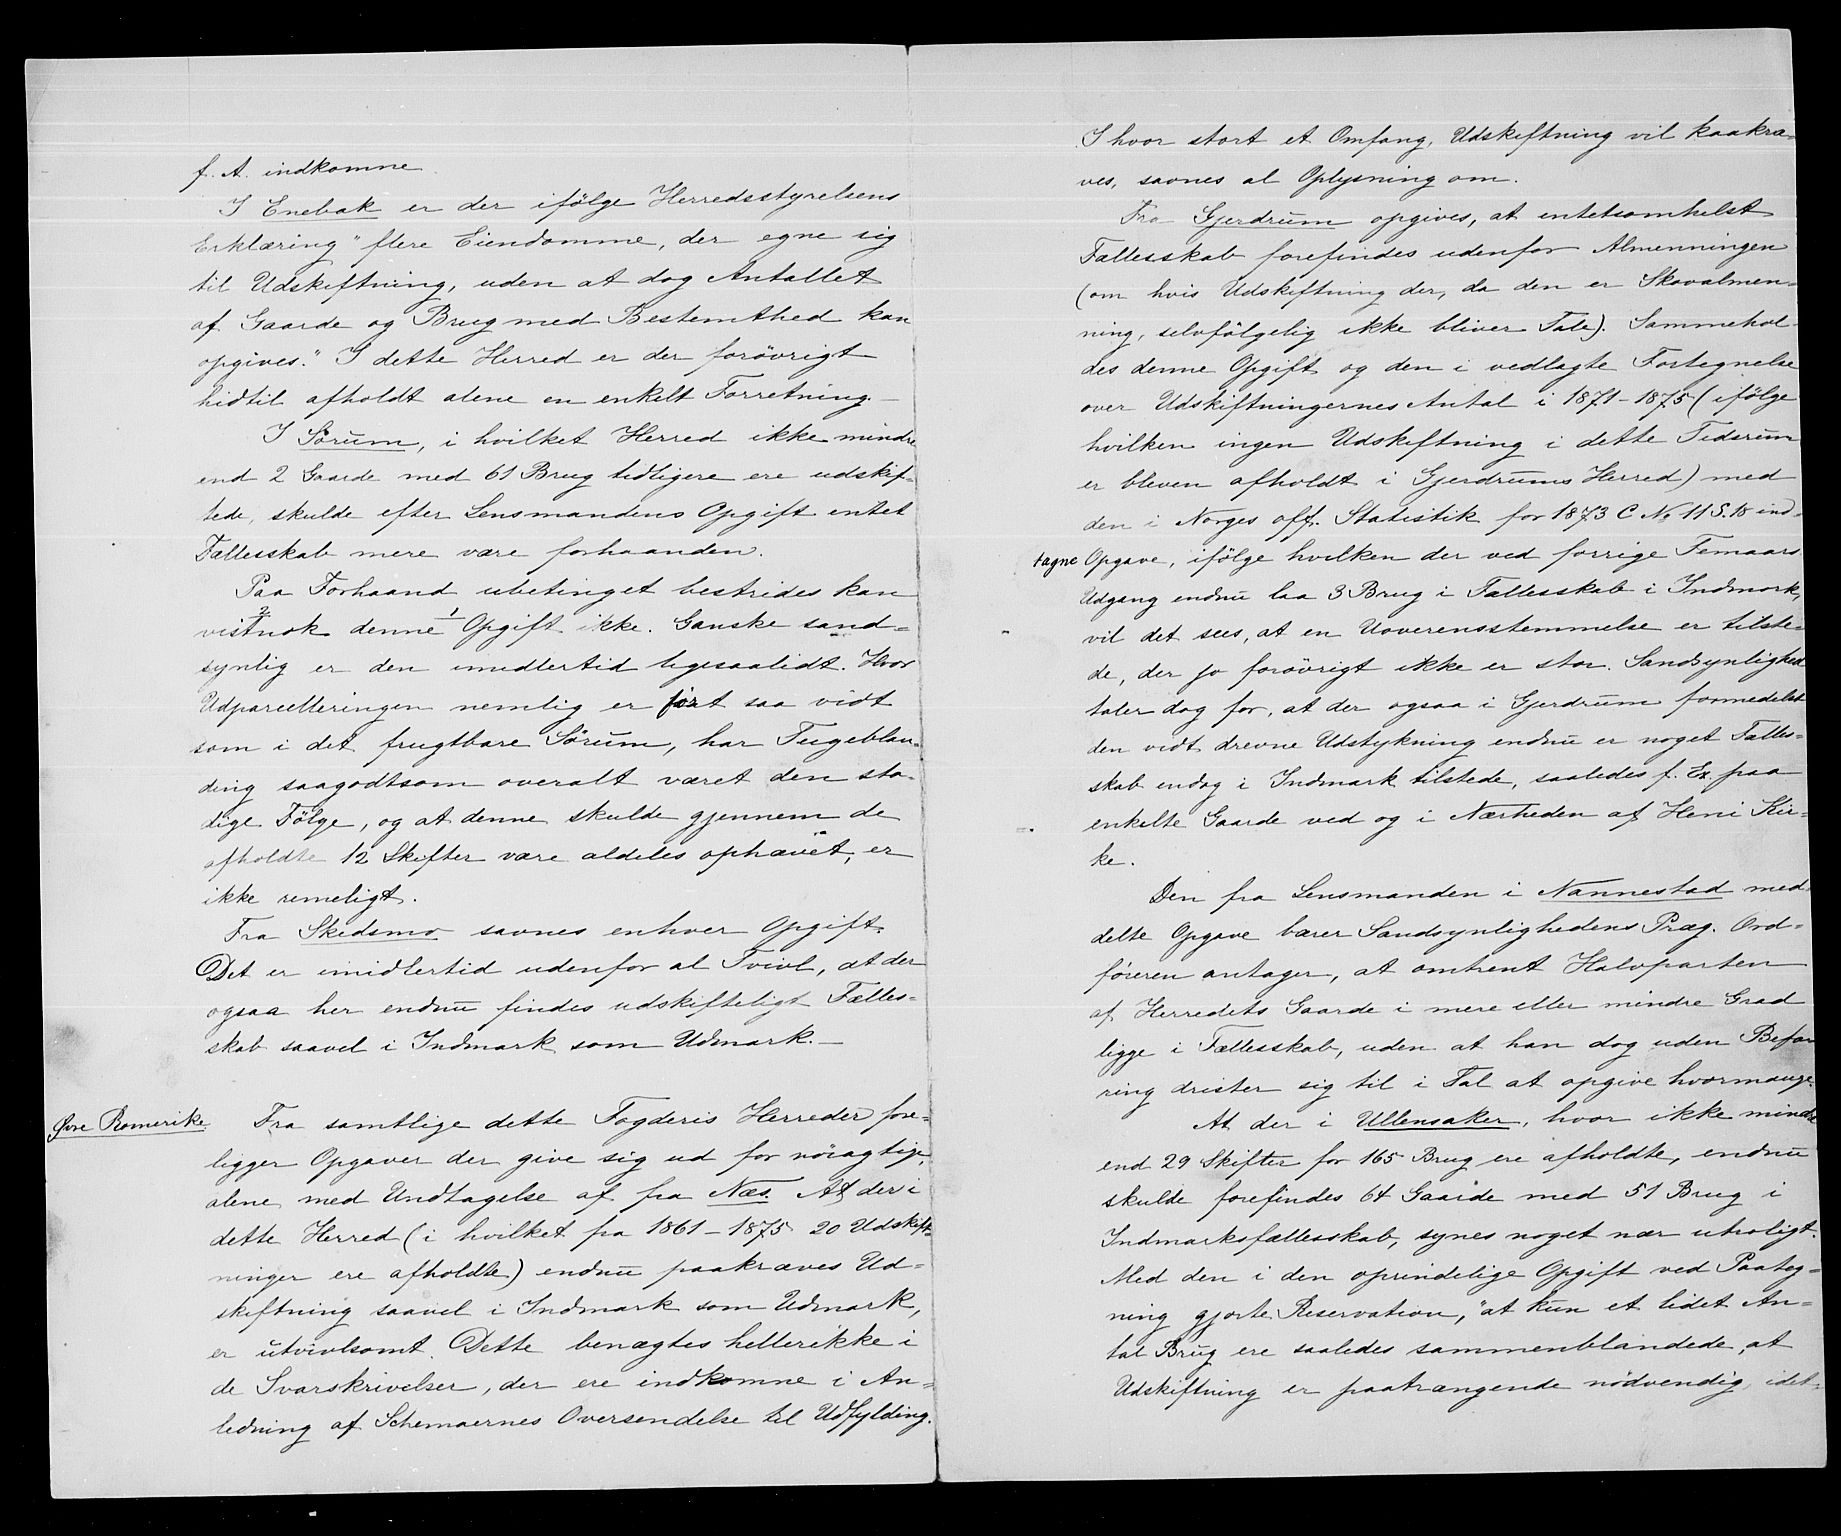 f. A. indkomne.
I Enebak er der ifölge Herredsstyrelsens
Erklæring "flere Eiendomme, der egne sig
til Udskiftning, uden at dog Antallet
af Gaarde og Brug med Bestemthed kan
opgives." I dette Herred er der forövrigt
hidtil afholdt alene en enkelt Forretning.—
I Sörum, i hvilket Herred ikke mindre
end 2 Gaarde med 61 Brug tidligere ere udskif-
tede, skulde efter Lensmandens Opgift intet
Fællesskab mere være forhaanden.
Paa Forhaand ubetinget bestrides kan
2 1
vistnok denne Opgift ikke. Ganske sand=
synlig er den imidlertid ligesaalidt. Hvor
Udparcelleringen nemlig er fört saa vidt
som i det frugtbare Sörum, har Teigeblan-
ding saagodtsom overalt været den sta-
dige Fölge, og at denne skulde gjennem de
afholdte 12 Skifter være aldeles ophævet, er
ikke rimeligt.
Fra Skedsmo savnes enhver Opgift.
Det er imidlertid udenfor al Tvivl, at der
ogsaa her endnu findes udskifteligt Fælles=
skab saavel i Indmark som Udmark.—
Øvre Romerike Fra samtlige dette Fogderis Herreder fore-
ligger Opgaver der give sig ud for nöiagtige,
alene med Undtagelse af fra Næs. At der i
dette Herred (i hvilket fra 1861–1875 20 Udskift-
ninger ere afholdte) endnu paakræves Ud=
skiftning saavel i Indmark som Udmark,
er utvivlsomt. Dette benægtes heller ikke i
de Svarskrivelser, der ere indkomne i An=
ledning af Schemaernes Oversendelse til Udfylding.
I hvor stort et Omfang, Udskiftning vil kaakræ=
ves, savnes al Oplysning om.
Fra Gjerdrum opgives, at intetsomhelst
Fællesskab forefindes udenfor Almenningen
(om hvis Udskiftning der, da den er Skovalmen=
ning, selvfölgelig ikke bliver Tale). Sammehol-
des denne Opgift og den i vedlagte Fortegnelse
over Udskiftningernes Antal i 1871–1875 (ifölge
hvilken ingen Udskiftning i dette Tidsrum
er bleven afholdt i Gjerdrums Herred) med
den i Norges off. Statistik for 1873 C No 11 S. 18 ind-
tagne Opgave, ifölge hvilken der ved forrige Femaars
Udgang endnu laa 3 Brug i Fællesskab i Indmark,
vil det sees, at en Uoverensstemmelse er tilste=
de, der jo forövrigt ikke er stor. Sandsynlighed
taler dog for, at der ogsaa i Gjerdrum formedelst
den vidt drevne Udstykning endnu er noget Fælles=
skab endog i Indmark tilstede, saaledes f. Ex. paa
enkelte Gaarde ved og i Nærheden af Heni Kir=
ke.
Den fra Lensmanden i Nannestad med-
delte Opgave bærer Sandsynlighedens Præg. Ord=
föreren antager, at omtrent Halvparten
af Herredets Gaarde i mere eller mindre Grad
ligge i Fællesskab, uden at han dog uden Befa-
ring drister sig til i Tal at opgive hvormange.
At der i Ullensaker, hvor ikke mindre
end 29 Skifter for 165 Brug ere afholdte, endnu
skulde forefindes 64 Gaarde med 51 Brug i
Indmarksfællesskab, synes noget nær utroligt.
Med den i den oprindelige Opgift ved Paateg=
ning gjorte Reservation, "at kun et lidet An=
tal Brug ere saaledes sammenblandede, at
Udskiftning er paatrængende nödvendig, idet-